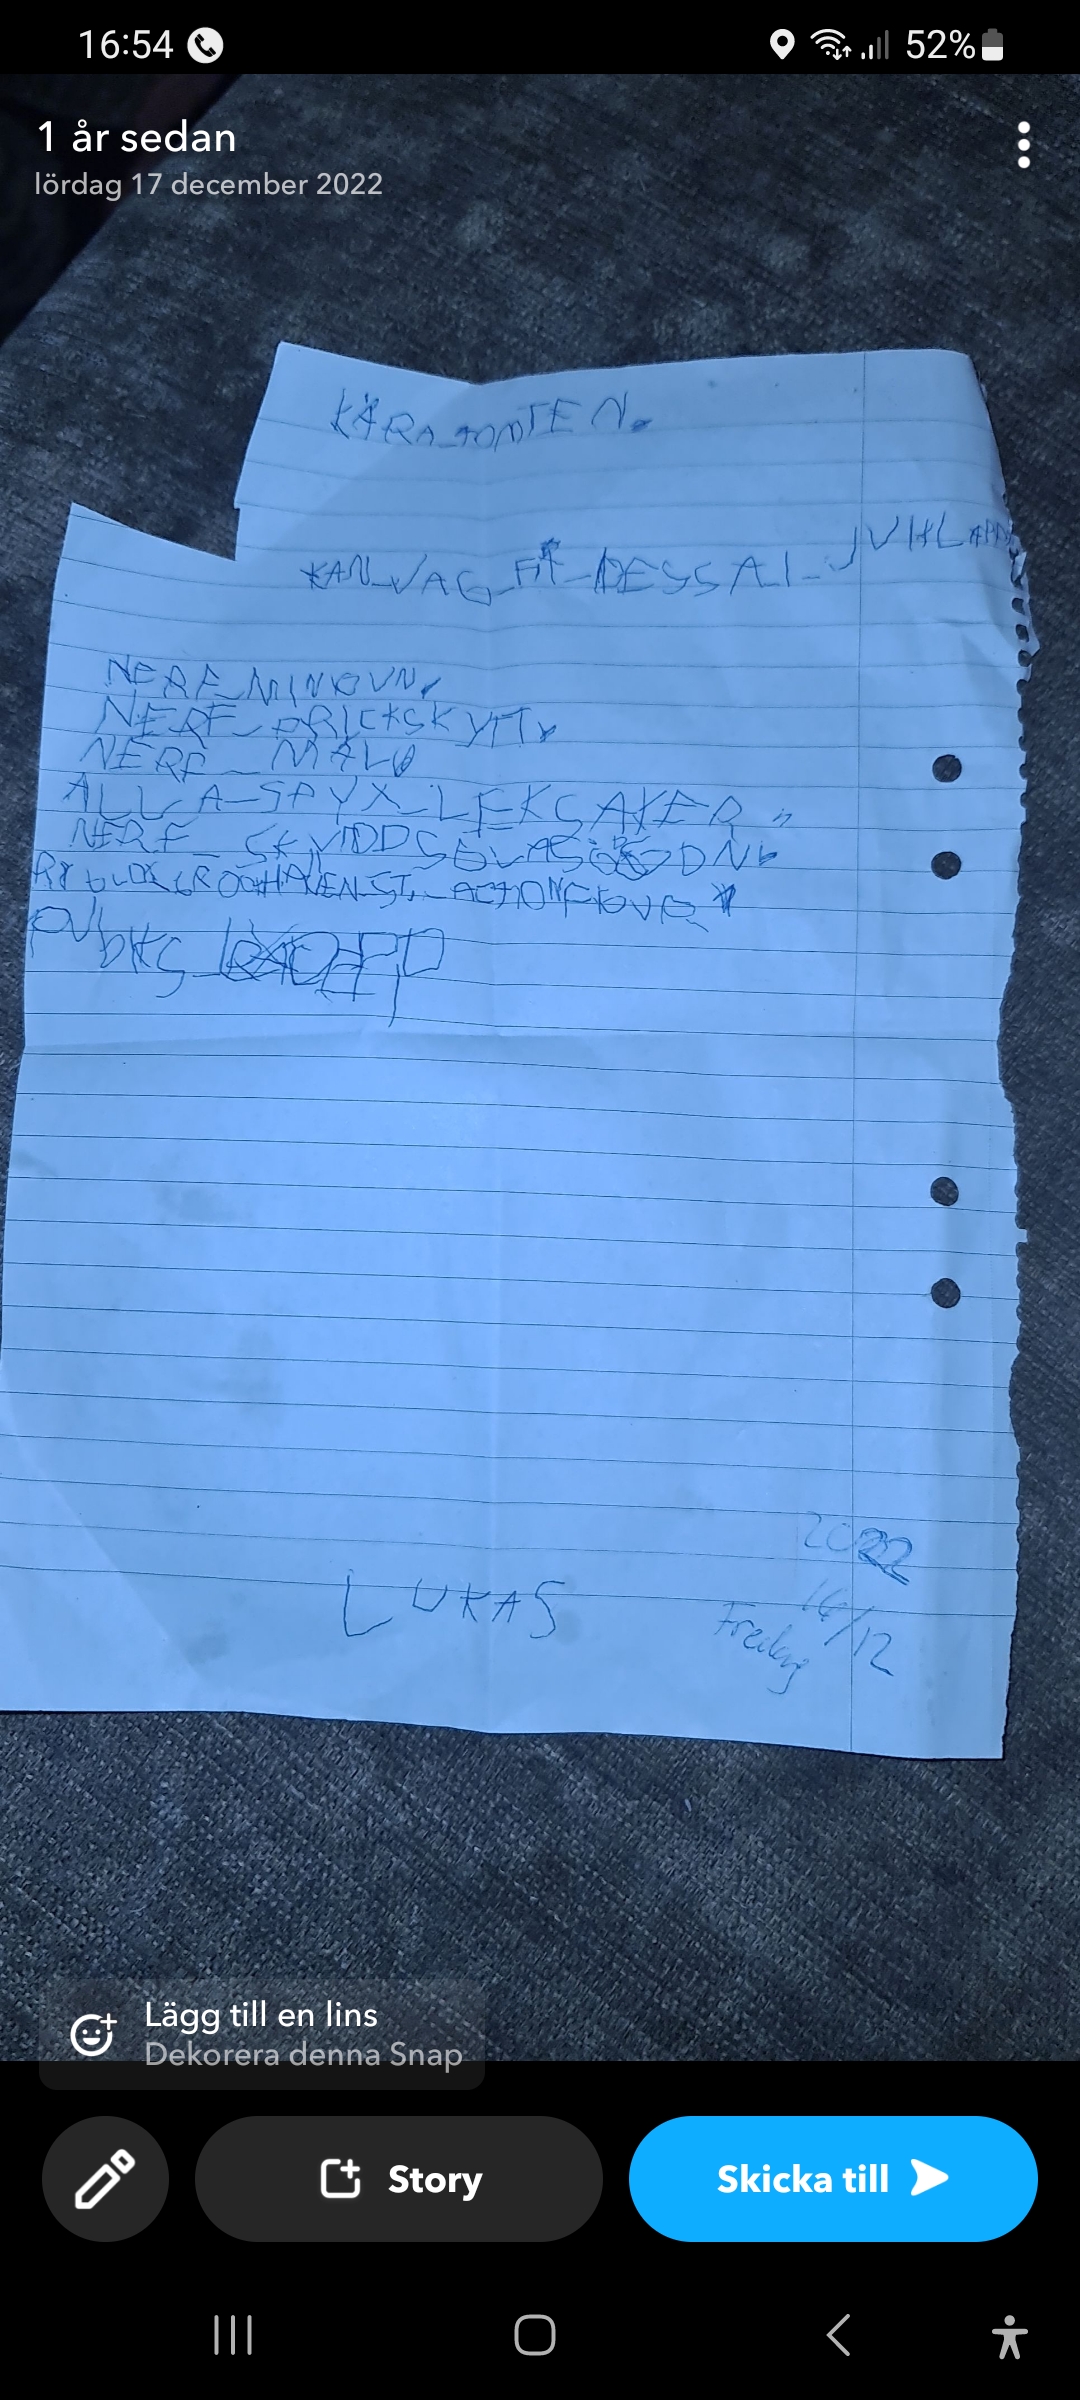 16:54
52%
1 år sedan
lördag 17 december 2022
KÄRA TOMTEN.
KAN JAG FÅ DESSA I JULKLAPP
NERF MINIGUN.
NERF PRICKSKYTT.
NERF MÅL
ALLA SPYX LEKSAKER
NERF SKYDDSGLASÖGON
ACTIONFIGUR
LUKAS
2022
16/12
Fredag
Lägg till en lins
Dekorera denna Snap
Story
Skicka till